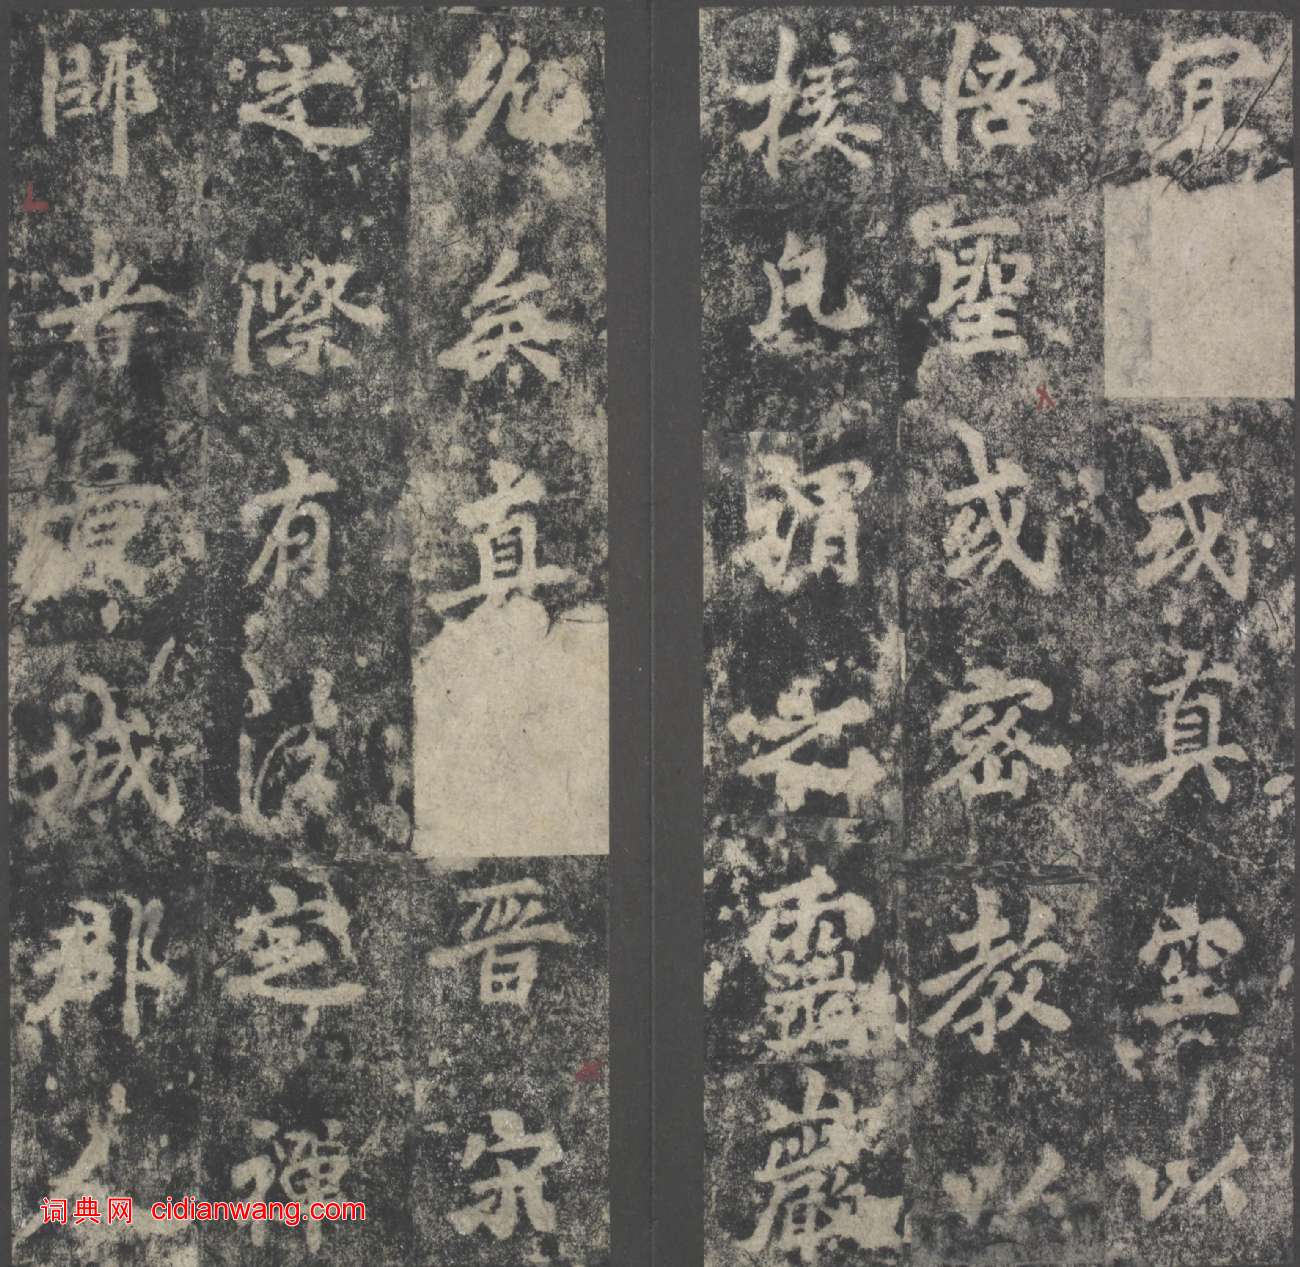 宜或真空以
悟聖或密教以
接凡謂之靈巖
允矣真晉宋
之際有法定禪
師者景城郡人
词典网 cidianwang.com